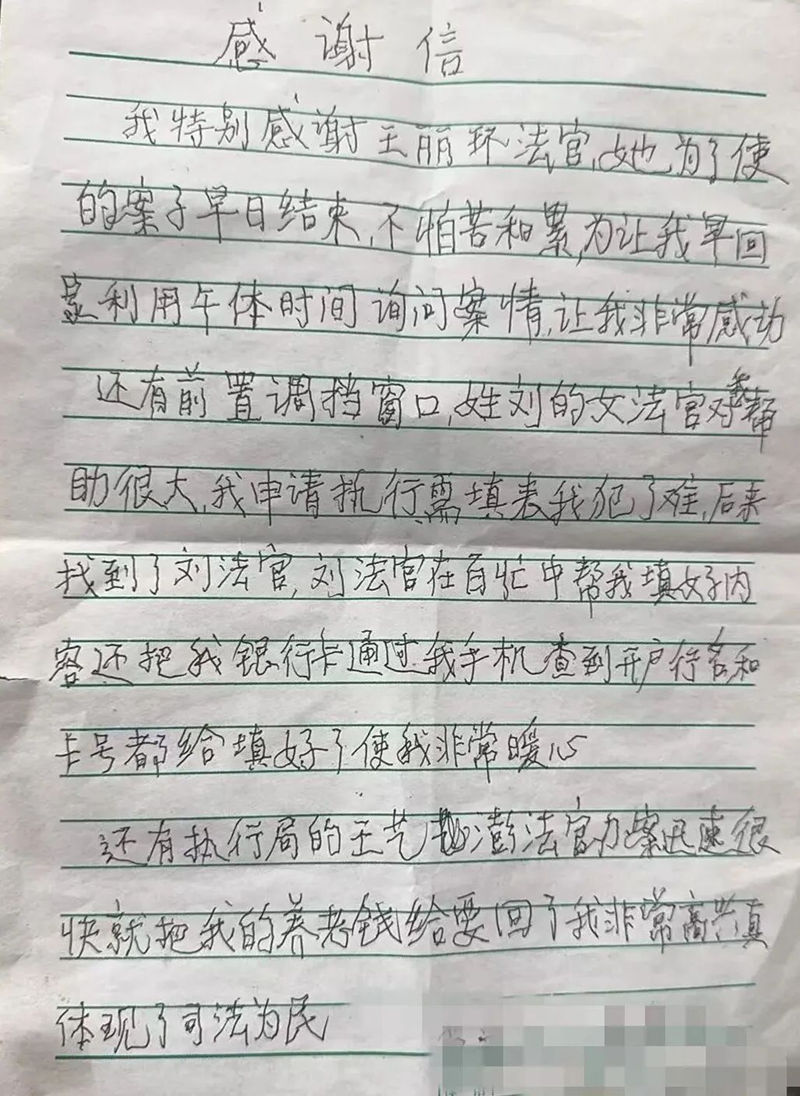 感谢信
我特别感谢王丽环法官,她为了使
的案子早日结束,不怕苦和累,为让我早回
家利用午休时间询问案情,让我非常感动
还有前置调挡窗口,姓刘的女法官对我帮
助很大,我申请执行需填表我犯了难,后来
找到了刘法官,刘法官在百忙中帮我填好内
容还把我银行卡通过我手机查到开户行名和
卡号都给填好了使我非常暖心
还有执行局的王艺澎法官办案迅速很
快就把我的养老钱给要回了我非常高兴真
体现了司法为民